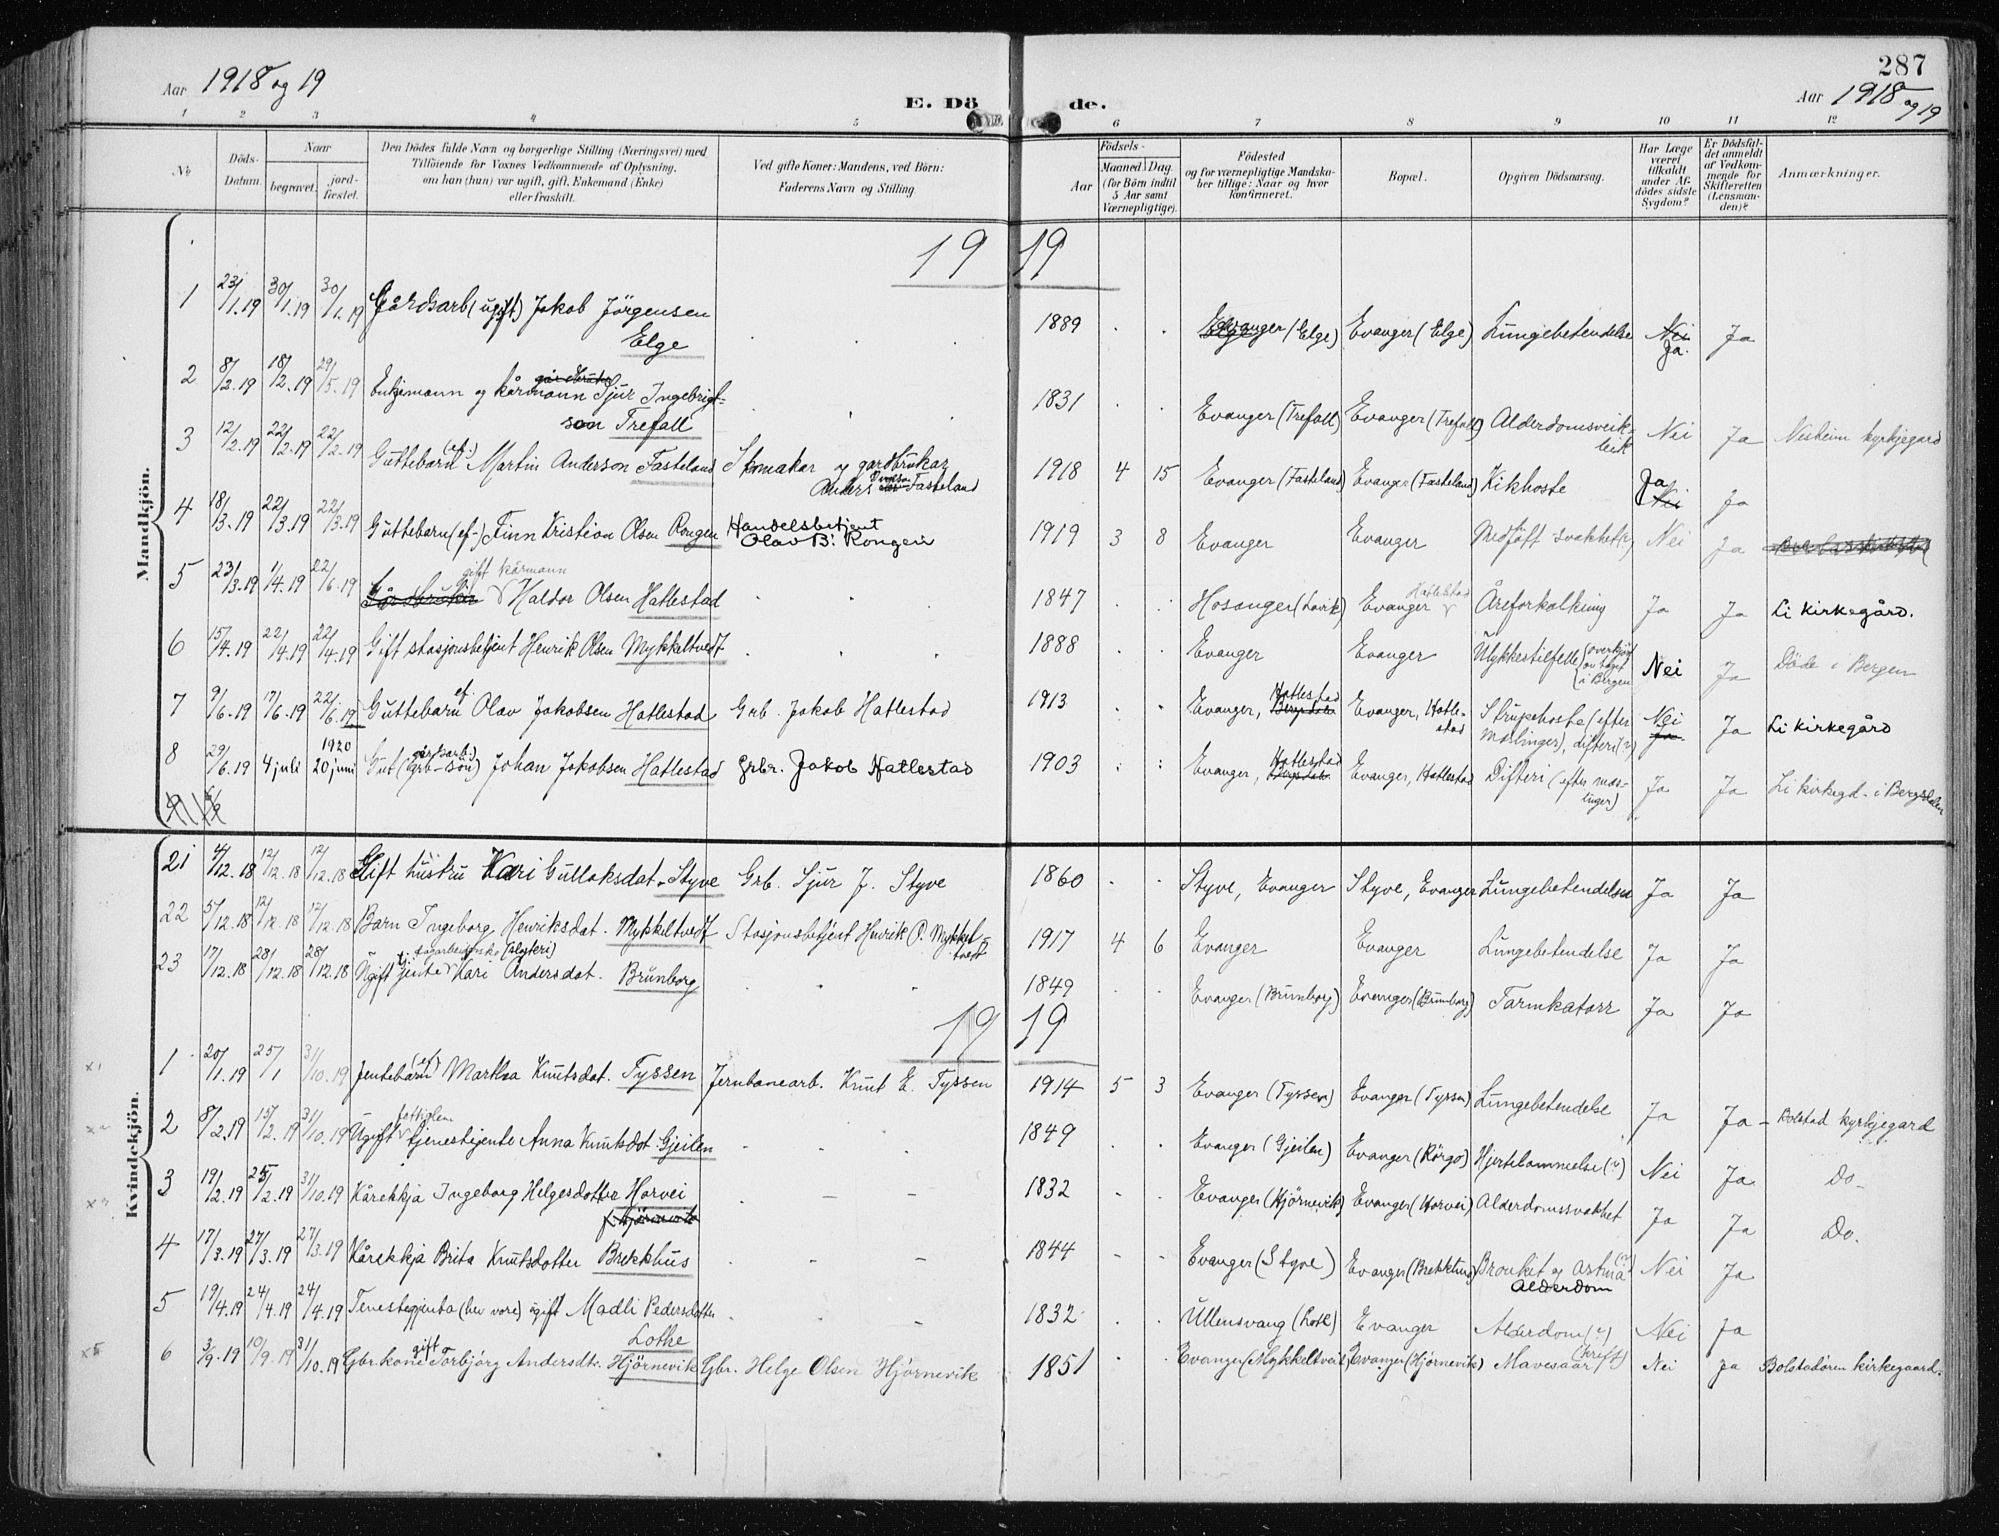 287
Aar 1918 og 19
E. Döde.
Aar 1918 og 19
1 2 3 4 5 6 7 8 9 10 11 12
No.
Döds-Datum.
Naar
begravet.
jord-fæstet.
Den Dödes fulde Navn og borgerlige Stilling (Næringsvei) med
Tilföiende for Voxnes Vedkommende af Oplysning,
om han (hun) var ugift, gift, Enkemand (Enke)
eller fraskilt.
Ved gifte Koner: Mandens, ved Börn:
Faderens Navn og Stilling
Födsels-
Aar
Maaned. Dag.
(for Börn indtil
5 Aar samt
Værnepligtige).
Födested
og for værnepligtige Mandska-
ber tillige: Naar og hvor
konfirmeret.
Bopæl.
Opgiven Dödsaarsag.
Har Læge
været
tilkaldt
under Af-
dödes sidste
Sygdom?
Er Dödsfal-
det anmeldt
af Vedkom-
mende for
Skifteretten
(Lensman-
den)?
Anmærkninger.
Mandkjön.
19 19
1 23/1.19 30/1.19 30/1.19 Gårdsarb (ugift) Jakob Jörgensen Elge 1889 Evanger (Elge) Evanger (Elge) Lungebetendelse Nei Ja. Ja
2 8/2.19 18/2.19 29/5.19 Enkjemann og kårmann Sjur Ingebrigtson Trefall 1831 Evanger (Trefall) Evanger (Trefall) Alderdomsveikleik Nei Ja Nesheim kyrkjegard
3 12/2.19 22/2.19 22/2.19 Guttebarn (ef.) Martin Anderson Fasteland Skomakar og gardbrukar Anders Fasteland 1918 4 15 Evanger (Fasteland) Evanger (Fasteland) Kikhoste Ja Nei Ja
4 18/3.19 22/3.19 22/3.19 Guttebarn (ef-) Finn Kristian Olsen Rongen Handelsbetjent Olav B. Rongen 1919 3 8 Evanger Evanger Medfött svakhet Nei Ja
5 23/3.19 1/4.19 22/6.19 Gårdbruker gift kårmann Haldor Olsen Hatlestad 1847 Hosanger (Lavik) Evanger Hatlestad Åreforkalking Ja Ja Li kirkegård.
6 15/4.19 22/4.19 22/4.19 Gift stasjonsbetjent Henrik Olsen Mykkeltvedt 1888 Evanger Evanger Ulykkestilfelle (overkjört av toget i Bergen Nei Ja Döde i Bergen
7 9/6.19 17/6.19 22/6.19 Guttebarn ef. Olav Jakobsen Hatlestad Grb. Jakob Hatlestad 1913 Evanger, Hatlestad Bergsdalen Evanger, Hatlestad Strupehoste (efter meslinger), difteri (?) Nei Ja Ja Li kirkegård
8 29/6.19 4 juli 1920 20 juni Gut (gårdsarb.) (grb-sön) Johan Jakobsen Hatlestad Grbr. Jakob Hatlestad 1903 Evanger, Hatlestad Bergsdalen Evanger, Hatlestad Difteri (efter meslinger) Ja Ja Li kirkegd. i Bergsdalen
Kvindekjön.
21 4/12.18 12/12.18 12/12.18 Gift hustru Kari Gullaksdat. Styve Grb. Sjur J. Styve 1860 Styve, Evanger Styve, Evanger Lungebetendelse Ja Ja
22 5/12.18 12/12.18 12/12.18 Barn Ingeborg Henriksdat. Mykkeltvedt Stasjonsbetjent Henrik P. Mykkeltvedt 1917 4 6 Evanger Evanger Lungebetendelse Ja Ja
23 17/12.18 28/12.18 28/12.18 Ugift tjente Kari Andersdat. Brunborg 1849 Evanger (Brunborg) Evanger (Brunborg) Tarmkatarr Ja Ja
19 19
x1 1 20/1.19 25/1 31/10.19 Jentebarn (ef) Martha Knutsdat. Tyssen Jernbanearb. Knut E. Tyssen 1914 5 3 Evanger (Tyssen) Evanger (Tyssen) Lungebetendelse Ja Ja
x2 2 8/2.19 15/2.19 31/10.19 Ugift fattiglem tjenestejente Anna Knutsdot. Gjeilen 1849 Evanger (Gjeilen) Evanger (Rörgo) Hjertelammelse (?) Nei Ja Bolstad kyrkjegard
x3 3 19/2.19 25/2.19 31/10.19 Kårekkja Ingeborg Helgesdotter Horvei 1832 Evanger (Hjörnevik) Evanger (Horvei) Alderdomssvakhet Ja Ja Do.
4 17/3.19 27/3.19 27/3.19 Kårekkja Brita Knutsdotter Brekkhus 1844 Evanger (Styve) Evanger (Brekkhus) Bronkit og astma (?) Alderdom Nei Ja Do.
5 19/4.19 24/4.19 24/4.19 Tenestegjenta (hev vore) ugift Madli Pedersdotter Lothe 1832 Ullensvang (Lote) Evanger Alderdom (?) Nei Ja
x5 6 3/9.19 10/9.19 31/10.19 Gbr.kone gift Torbjörg Andersdtr. Hjörnevik Gbr. Helge Olsen Hjörnevik 1851 Evanger (Mykkeltveit) Evanger (Hjörnevik) Mavesaar (kreft) Nei Ja Bolstadören kirkegaard.